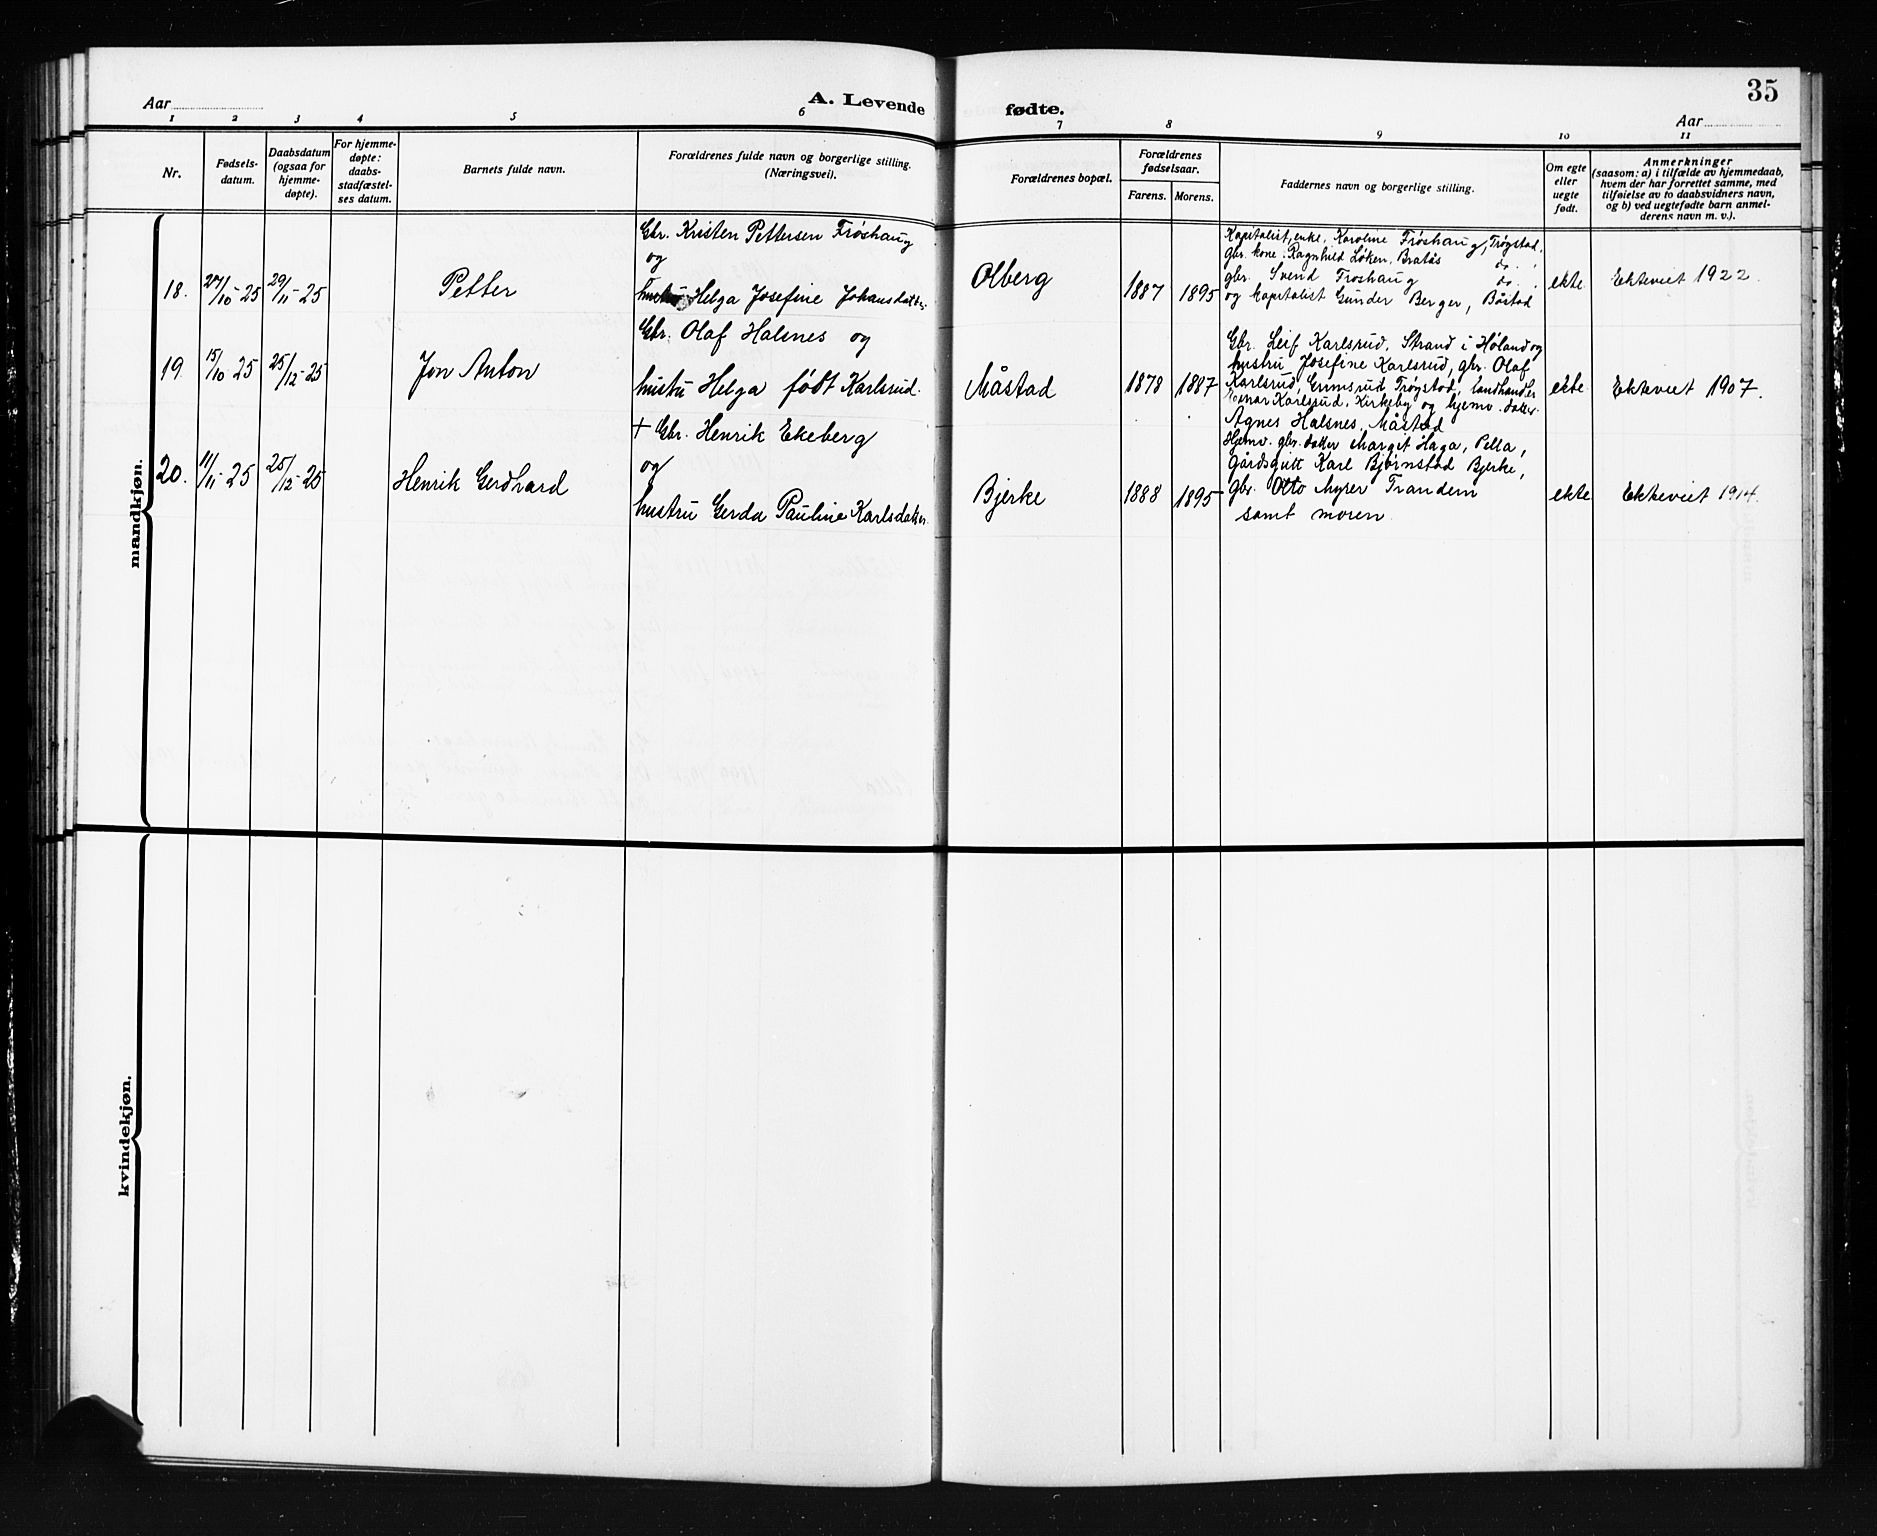 35
Aar
A. Levende
fødte.
Aar
1 2 3 4 5 6 7 8 9 10 11
Nr.
Fødsels-
datum.
Daabsdatum
(ogsaa for
hjemme-
døpte).
For hjemme-
døpte:
daabs-
stadfæstel-
ses datum.
Barnets fulde navn.
Forældrenes fulde navn og borgerlige stilling.
(Næringsvei).
Forældrenes bopæl.
Forældrenes
fødselsaar.
Farens.
Morens.
Faddernes navn og borgerlige stilling.
Om egte
eller
uegte
født.
Anmerkninger
(saasom: a) i tilfælde av hjemmedaab,
hvem der har forrettet samme, med
tilføielse av to daabsvidners navn,
og b) ved uegtefødte barn anmel-
derens navn m. v.).
mandkjøn.
18.
27/10-25
29/11-25
Petter
Gbr. Kristen Pettersen Frøshaug
og
hustru Helga Josefine Johansdatter
Olberg
1887
1895
Kapitalist, enke, Karoline Frøshaug, Trøgstad,
gbr. kone. Ragnhild Løken, Bratås do.
gbr. Svend Frøshaug do.
og kapitalist Gunder Berger, Båstad
ekte
Ekteviet 1922.
19
15/10-25
25/12-25
Jon Anton
Gbr. Olaf Halsnes og
hustru Helga født Karlsrud.
Måstad
1878
1887
Gbr. Leif Karlsrud, Strand i Høland og
hustru Josefine Karlsrud, gbr. Olaf
Karlsrud, Grimsrud Trøgstad, landhandler
Karlsrud, Kirkeby og hjemv. datter
Agnes Halsnes, Måstad
ekte
Ekteviet 1907.
20.
11/11-25
25/12-25
Henrik Gerdhard
+ Gbr. Henrik Ekeberg
og
hustru Gerda Pauline Karlsdatter
Bjerke
1888
1895
Hjemv. gbr. datter Margit Haga, Pella,
gårdsgutt Karl Bjørnstad Bjerke,
gbr. Otto Myrer Trandem
samt moren.
ekte
Ekteviet 1914.
kvindekjøn.